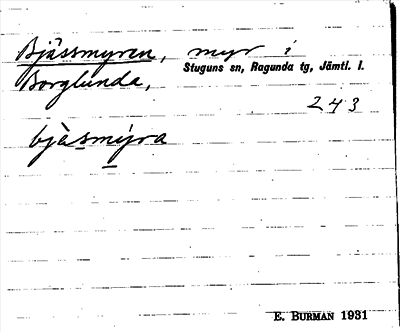 Bjässmyren, myr i
Stuguns sn, Ragunda tg, Jämtl. l.
Borglunda,
243
bjàsmýra
E. BURMAN 1931